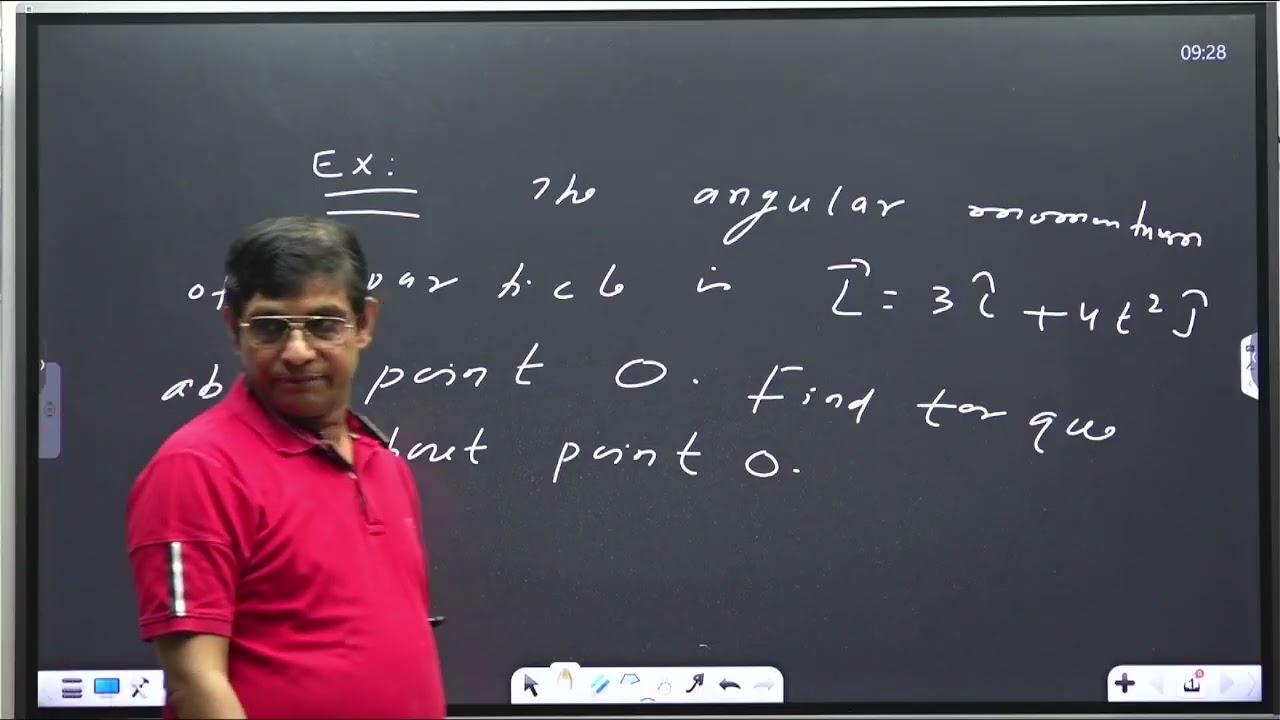 09:28
Ex: The angular momentum
of particle is L⃗ = 3î + 4t²ĵ
point O. Find torque
point O.